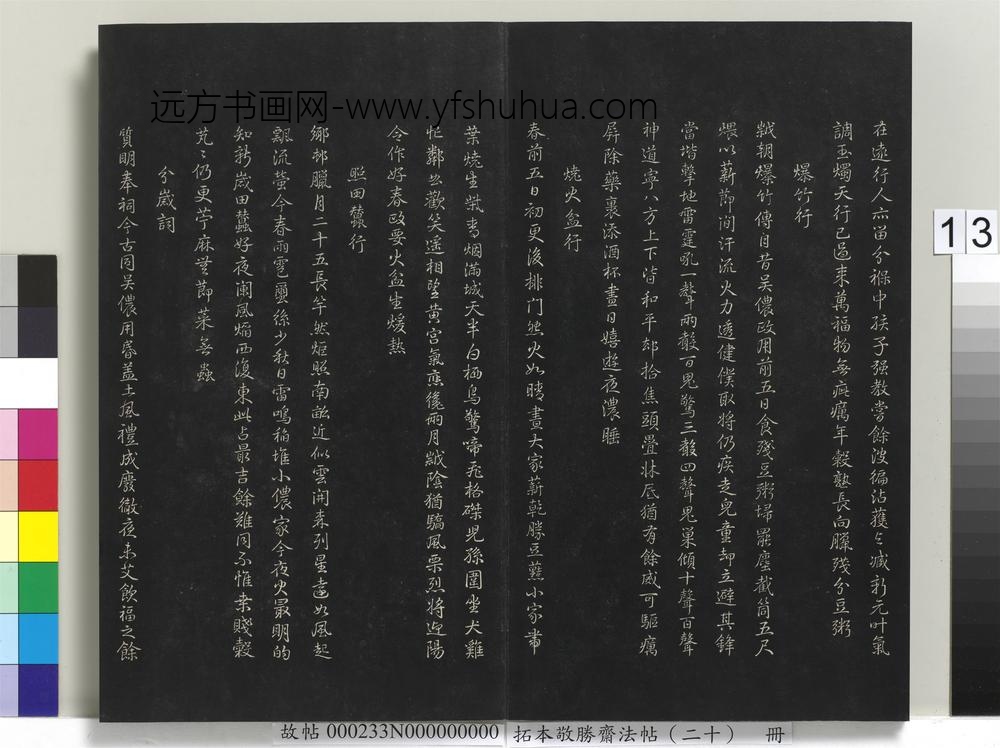 在遠行人亦留分褓中孩子强教嘗餘波徧沾獲与臧新元叶氣
調玉燭天行已過来萬福物無疵癘年穀熟長向臘殘分豆粥
爆竹行
歲朝爆竹傳自昔吳儂政用前五日食殘豆粥埽罷塵截筒五尺
煨以薪節間汗流火力透健僕取將仍疾走兒童却立避其鋒
當堦擊地雷霆吼一聲兩聲百鬼驚三聲四聲鬼巢傾十聲百聲
神道寧八方上下皆和平却拾焦頭疊牀底猶有餘威可驅癘
屏除藥裹添酒杯晝日嬉遊夜濃睡
燒火盆行
春前五日初更後排門然火如晴晝大家薪乾勝豆䕸小家帶
葉燒生柴青烟滿城天半白栖鳥驚啼飛格磔兒孫圍坐犬雞
忙鄰曲歡笑遥相望黄宫氣應纔兩月歲陰猶驕風栗烈將迎陽
合作好春政要火盆生煖熱
照田蠶行
鄉村臘月二十五長竿然炬照南畝近似雲開森列星遠如風起
飄流螢今春雨雹繭絲少秋日雷鳴稲堆小儂家今夜火最明的
知新歲田蠶好夜闌風焰西復東此占最吉餘難同不惟桑賤穀
芃〻仍更苧麻無節菜無蟲
分歲詞
質明奉祠今古同吳儂用昏盖土風禮成廢徹夜未艾飲福之餘
远方书画网-www.yfshuhua.com
13
故帖 000233N000000000 拓本敬勝齋法帖（二十） 冊